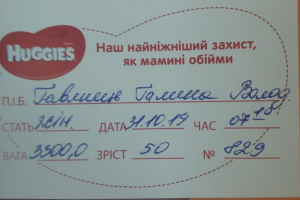 HUGGIES
Наш найніжніший захист,
як мамині обійми
П.І.Б. Галина Волод.
СТАТЬ жін. ДАТА 31.10.19 ЧАС 07 10
ВАГА 3300,0 ЗРІСТ 50 № 829